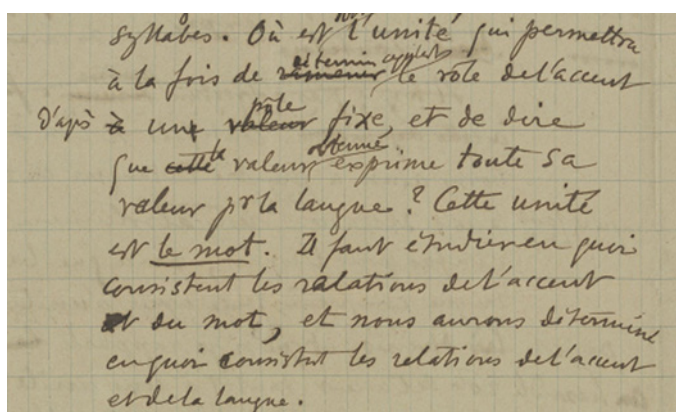 syllabes. Où est l'unité qui permettra
à la fois de ramener le rôle de l'accent
d'après à une valeur pôle fixe, et de dire
que cette la valeur obtenue exprime toute sa
valeur pr la langue ? Cette unité
est le mot. Il faut étudier en quoi
consistent les relations de l'accent
et du mot, et nous aurons déterminé
en quoi consistent les relations de l'accent
et de la langue.